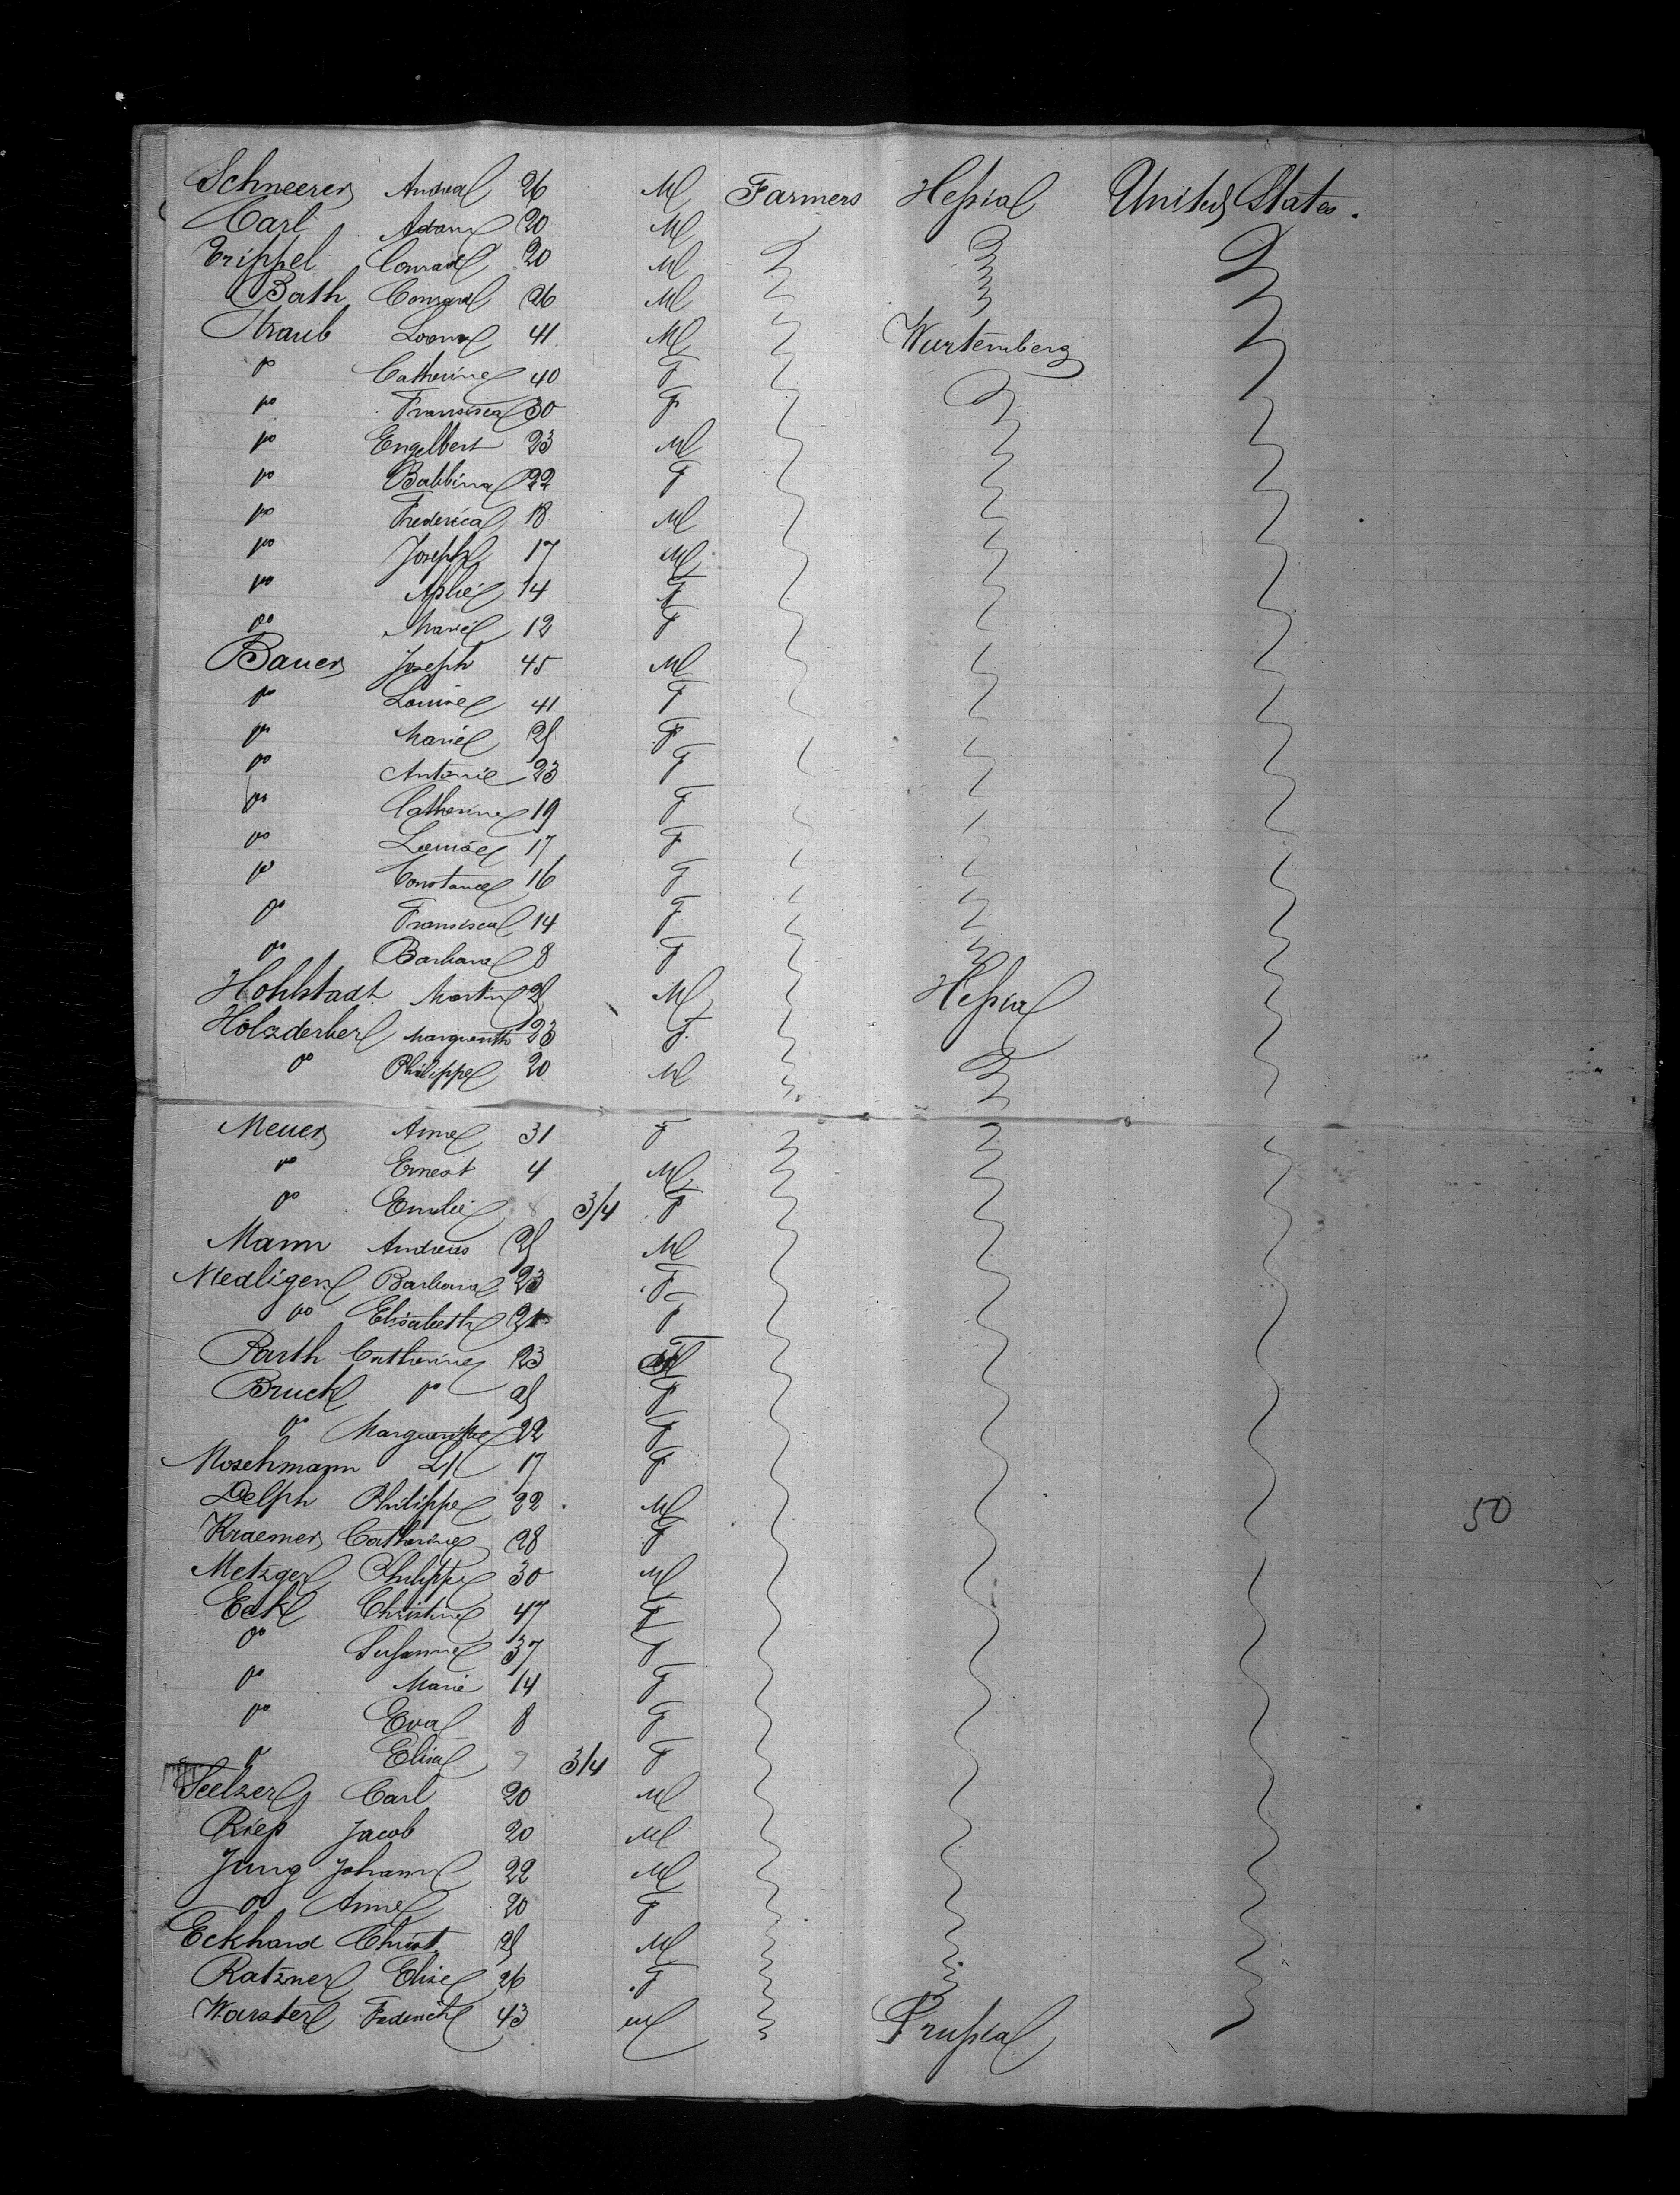 Schneerer Andrea 26 M Farmers Hessia United States.
Carl Adam 20 M
Erippel Conrad 20 M
Bath Conrad 26 M
Straub 41 M Wurtemberg
do Catherine 40 F
do Francisca 30 F
do Engelbert 23 M
do Balbina 22 F
do Frederica 18 M
do Joseph 17 M
do 14 F
do Marie 12 F
Bauer Joseph 45 M
do Louise 41 F
do Marie 25 F
do Antonie 23 F
do Catherine 19 F
do Louise 17 F
do Constance 16 F
do Francisca 14 F
do Barbara 8 F
Hohlstadt Martin 25 M Hessia
Holzderber Marguerith 23 F
do Philippe 20 M
Meuer Anna 31 F
do Ernest 4 M
do Emilie 3/4 F
Mann Andreas 25 M
Niedligen Barbara 23 F
do Elisabeth 21 F
Parth Catherine 23 F
Bruck do 25 F
do Marguerithe 22 F
Moschmann 17 F
Delph Philippe 22 M
50
Kraemer Catherine 28 F
Metzger Philippe 30 M
Eck Christine 47 F
do Susanne 37 F
do Marie 14 F
do Eva 8 F
do Elisa 3/4 F
Seelzer Carl 20 M
Riess Jacob 20 M
Jung Johann 22 M
do Anne 20 F
Eckhard Christ. 25 M
Ratzner Elise 26 F
Warster Federich 43 M Prussia